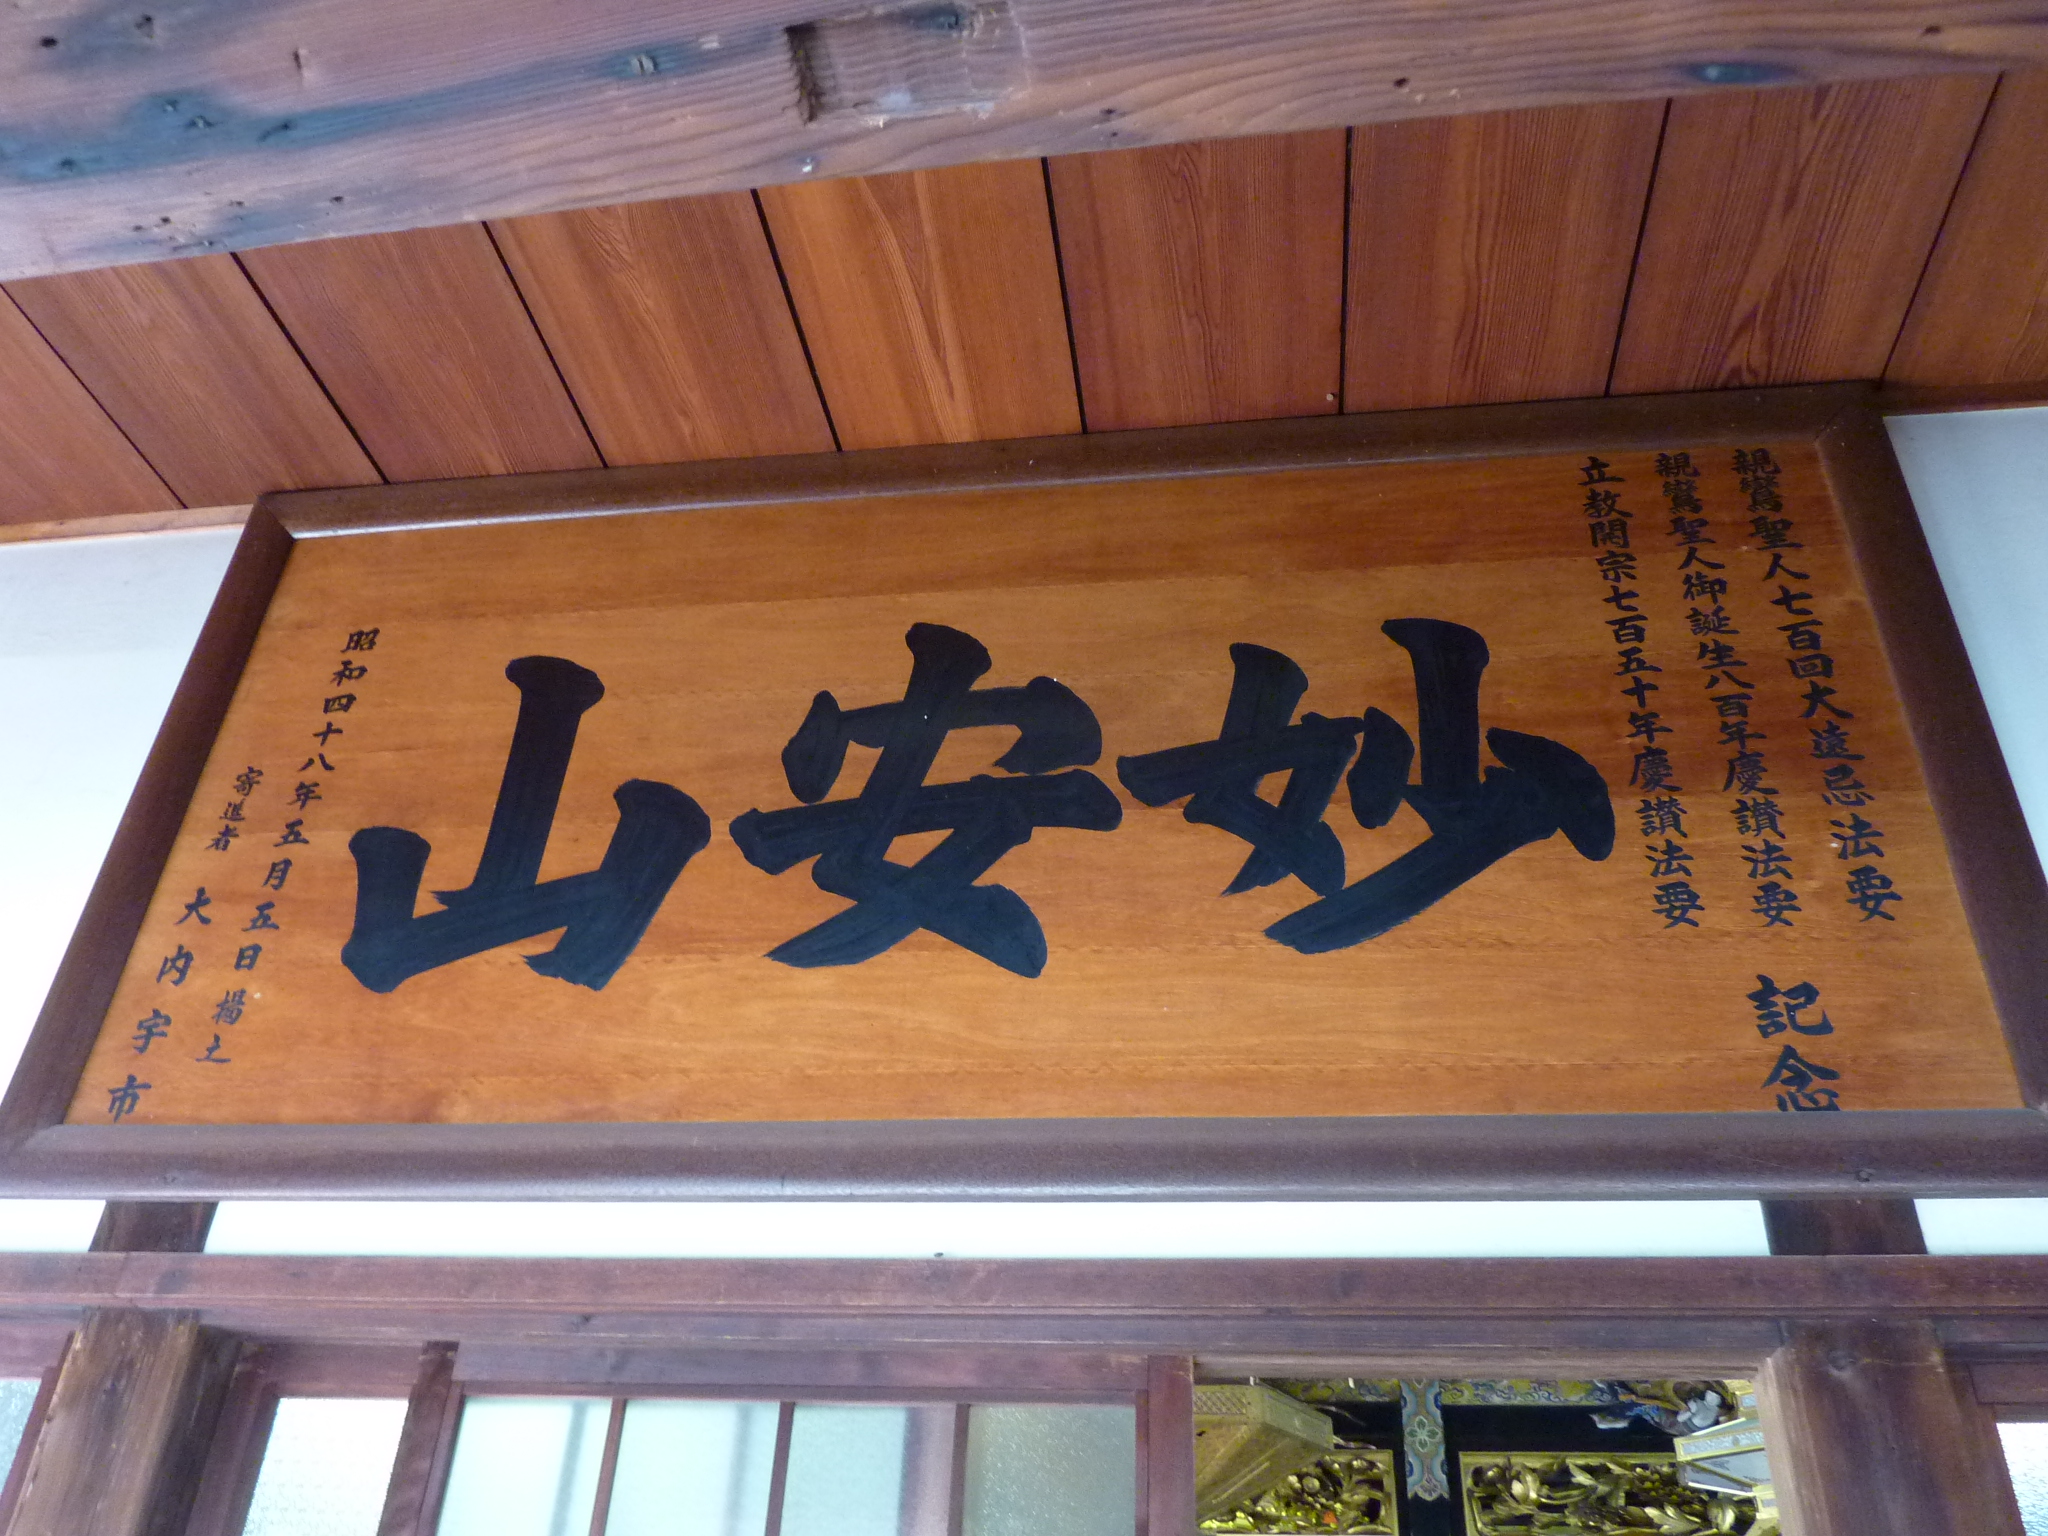 親鸞聖人七百回大遠忌法要
親鸞聖人御誕生八百年慶讃法要
立教開宗七百五十年慶讃法要
記念
妙安山
昭和四十八年五月五日楊土
寄進者 大内宇市